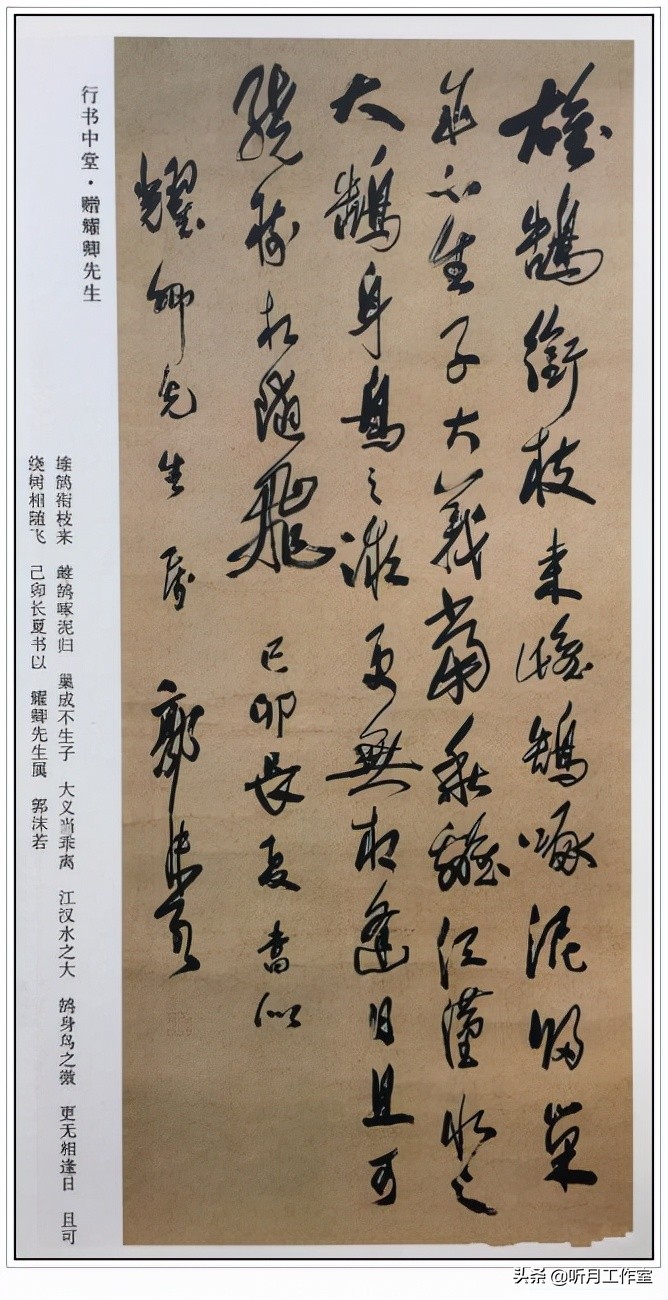 雄鵠銜枝来雌鵠啄泥歸巢
成不生子大義當乖離江漢水之
大鵠身鳥之微更無相逢日且可
繞樹相隨飛 己卯長夏書似
耀卿先生属 郭沫若
行书中堂·赠耀卿先生
雄鹄衔枝来 雌鹄啄泥归 巢成不生子 大义当乖离 江汉水之大 鹄身鸟之微 更无相逢日 且可
绕树相随飞 己卯长夏书以 耀卿先生属 郭沫若
头条 @听月工作室